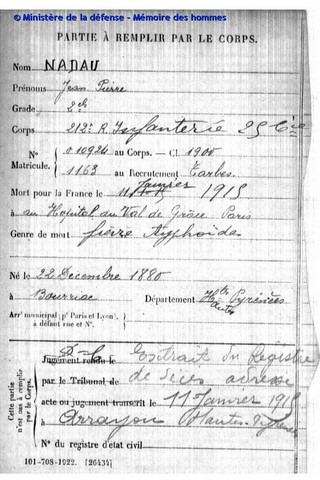 © Ministère de la défense - Mémoire des hommes
PARTIE À REMPLIR PAR LE CORPS.
Nom NADAU
Prénoms Jean Pierre
Grade 2e
Corps 212e R. Infanterie 25 Cie
N° 010924 au Corps. — Cl. 1900
Matricule. 1163 au Recrutement Tarbes
Mort pour la France le 11 Janvier 1915
à au Hôpital du Val de Grâce Paris
Genre de mort fièvre typhoïde
Né le 22 Decembre 1880
à Département Htes Pyrénées
Arr' municipal (p' Paris et Lyon),
à défaut rue et N°.
Cette partie n'est pas à remplir par le Corps.
Jugement rendu le Extrait du Registre
par le Tribunal de de Décès
acte ou jugement transcrit le 11 Janvier 1915
à Hautes-Pyrénées
N° du registre d'état civil
101-708-1922. [26434]